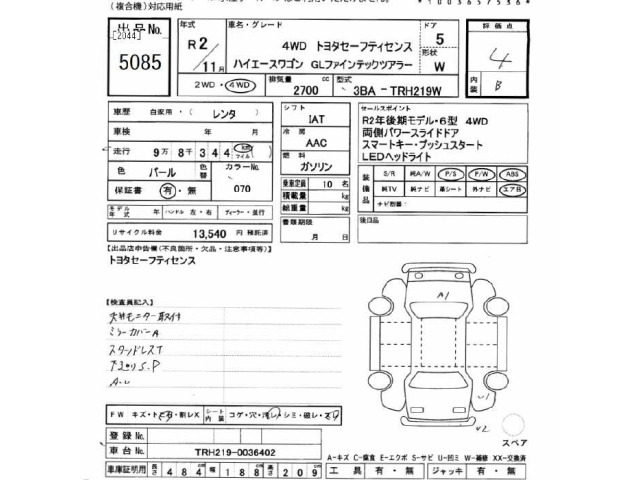 (複合機)対応用紙
*1003657536*
出品No.
[2044]
5085
年式
R2/11月
車名・グレード
4WD トヨタセーフティセンス
ハイエースワゴン GLファインテックツアラー
ドア
5
形状
W
評価点
4
内装
B
2WD・4WD
排気量
2700
cc
型式
3BA-TRH219W
車歴
自家用・(レンタ)
車検
年 月
走行
9万8千344
km
マイル
色
パール
色替
カラーNo.
070
保証書
有・無
シフト
IAT
冷房
AAC
燃料
ガソリン
乗車定員
10 名
積載量
kg
総重量
kg
書類期限
月 日
セールスポイント
R2年後期モデル・6型 4WD
両側パワースライドドア
スマートキー・プッシュスタート
LEDヘッドライト
装備品
S/R 純A/W P/S P/W ABS
純TV 純ナビ 革シート 外ナビ エアB
ナビ型番:
後日品
モデル年式
年
ハンドル 左・右
ディーラー・並行
リサイクル料金
13,540
円 預託済
【出品店申告欄(不良箇所・欠品・注意事項等)】
トヨタセーフティセンス
【検査員記入】
天井モニター取付
ミラーカバーA
A1
U1
U2
スペア
FW キズ・トビA・削レX
シート内装
コゲ・穴・汚レ・シミ・破レ・スリ
登録No.
車台No.
TRH219-0036402
車庫証明用
長さ 484 cm 幅 188 cm 高さ 209 cm
A-キズ C-腐食 E-エクボ S-サビ U-凹ミ W-補修 XX-交換済
工具 有・無 ジャッキ 有・無